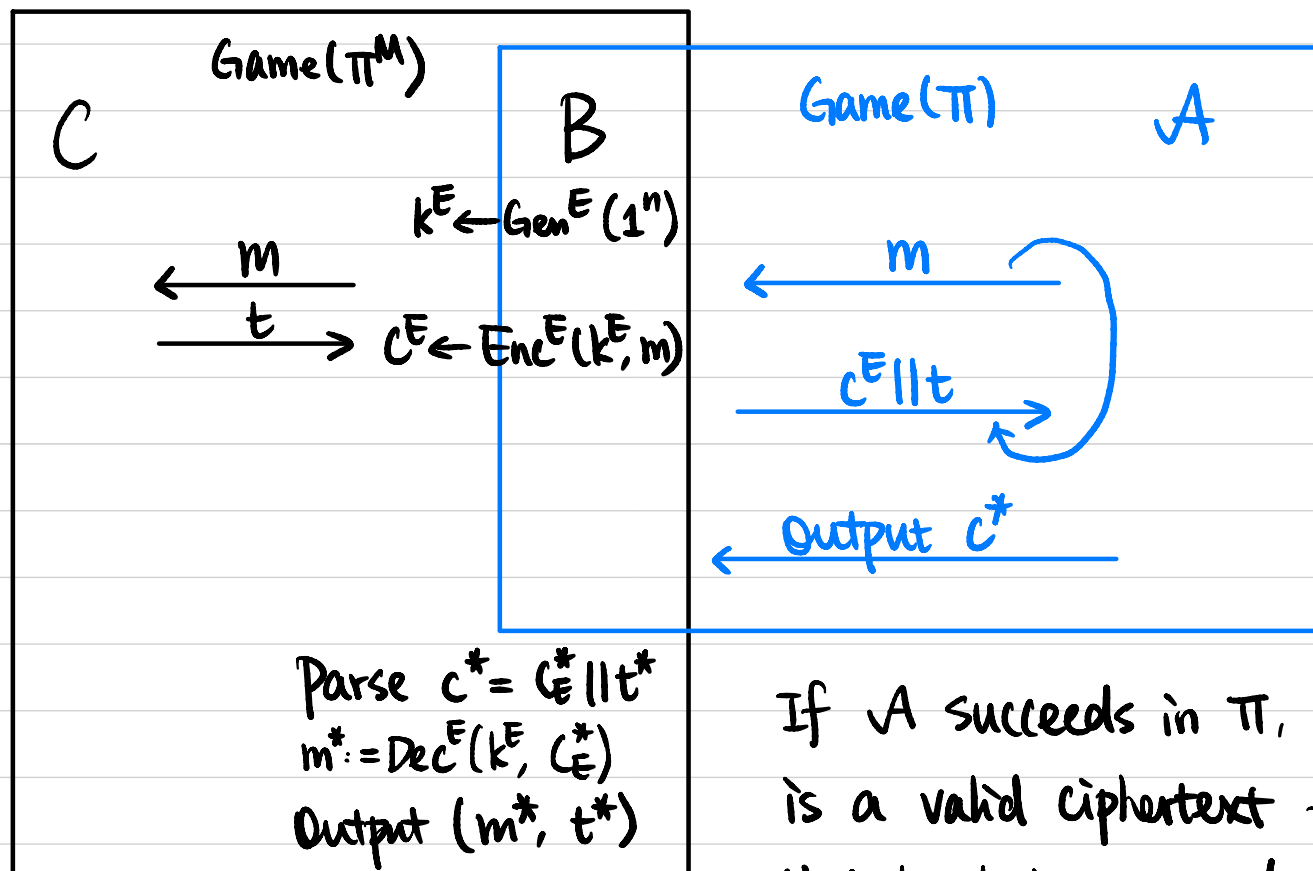 Game(Π^M)
C
B
k^E ← Gen^E(1^n)
m
t
c^E ← Enc^E(k^E, m)
Game(Π)
A
m
c^E || t
Output c*
Parse c* = C_E^* || t*
m* := Dec^E(k^E, C_E^*)
Output (m*, t*)
If A succeeds in Π,
is a valid ciphertext